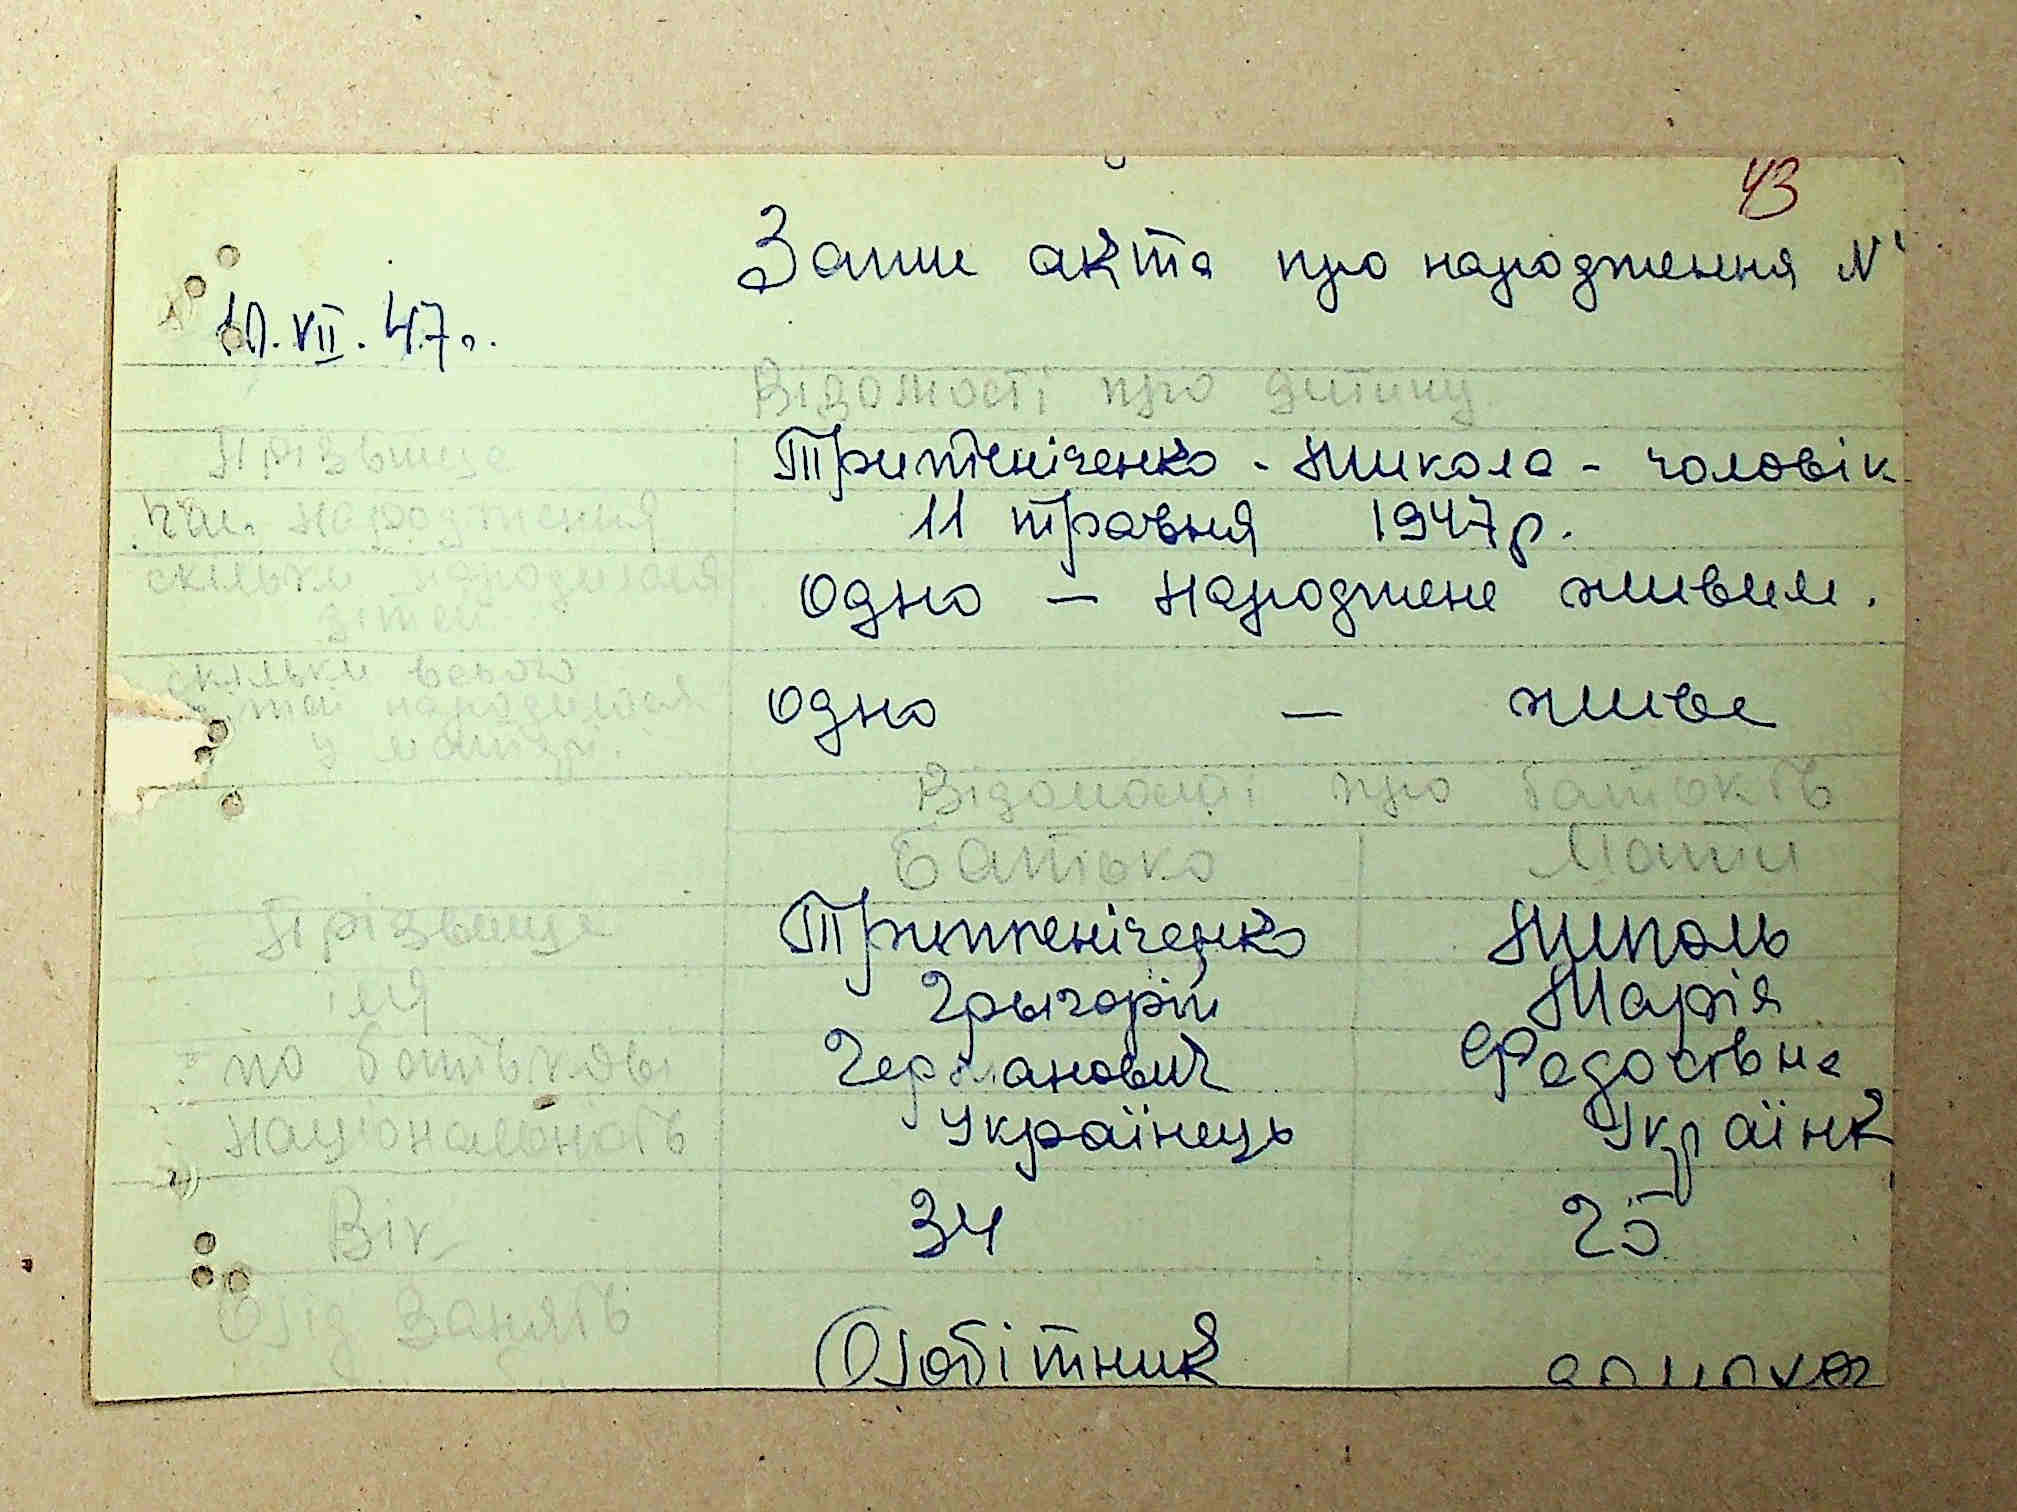 43
Запис акта про народження N
10.VII.47р.
Відомості про дитину
Прізвище Трипченіченко - Микола - чоловік
Час народження 11 травня 1947р.
скільки народилося Одно — народжене живим.
дітей
скільки всього
дітей народилося одно — живе
у матері.
Відомості про батьків
Батько Мати
Прізвище
імя Григорій Марія
по батькові Германович Федосівна
Національність Українець Українк
Вік 34 25
Рід занять Робітник